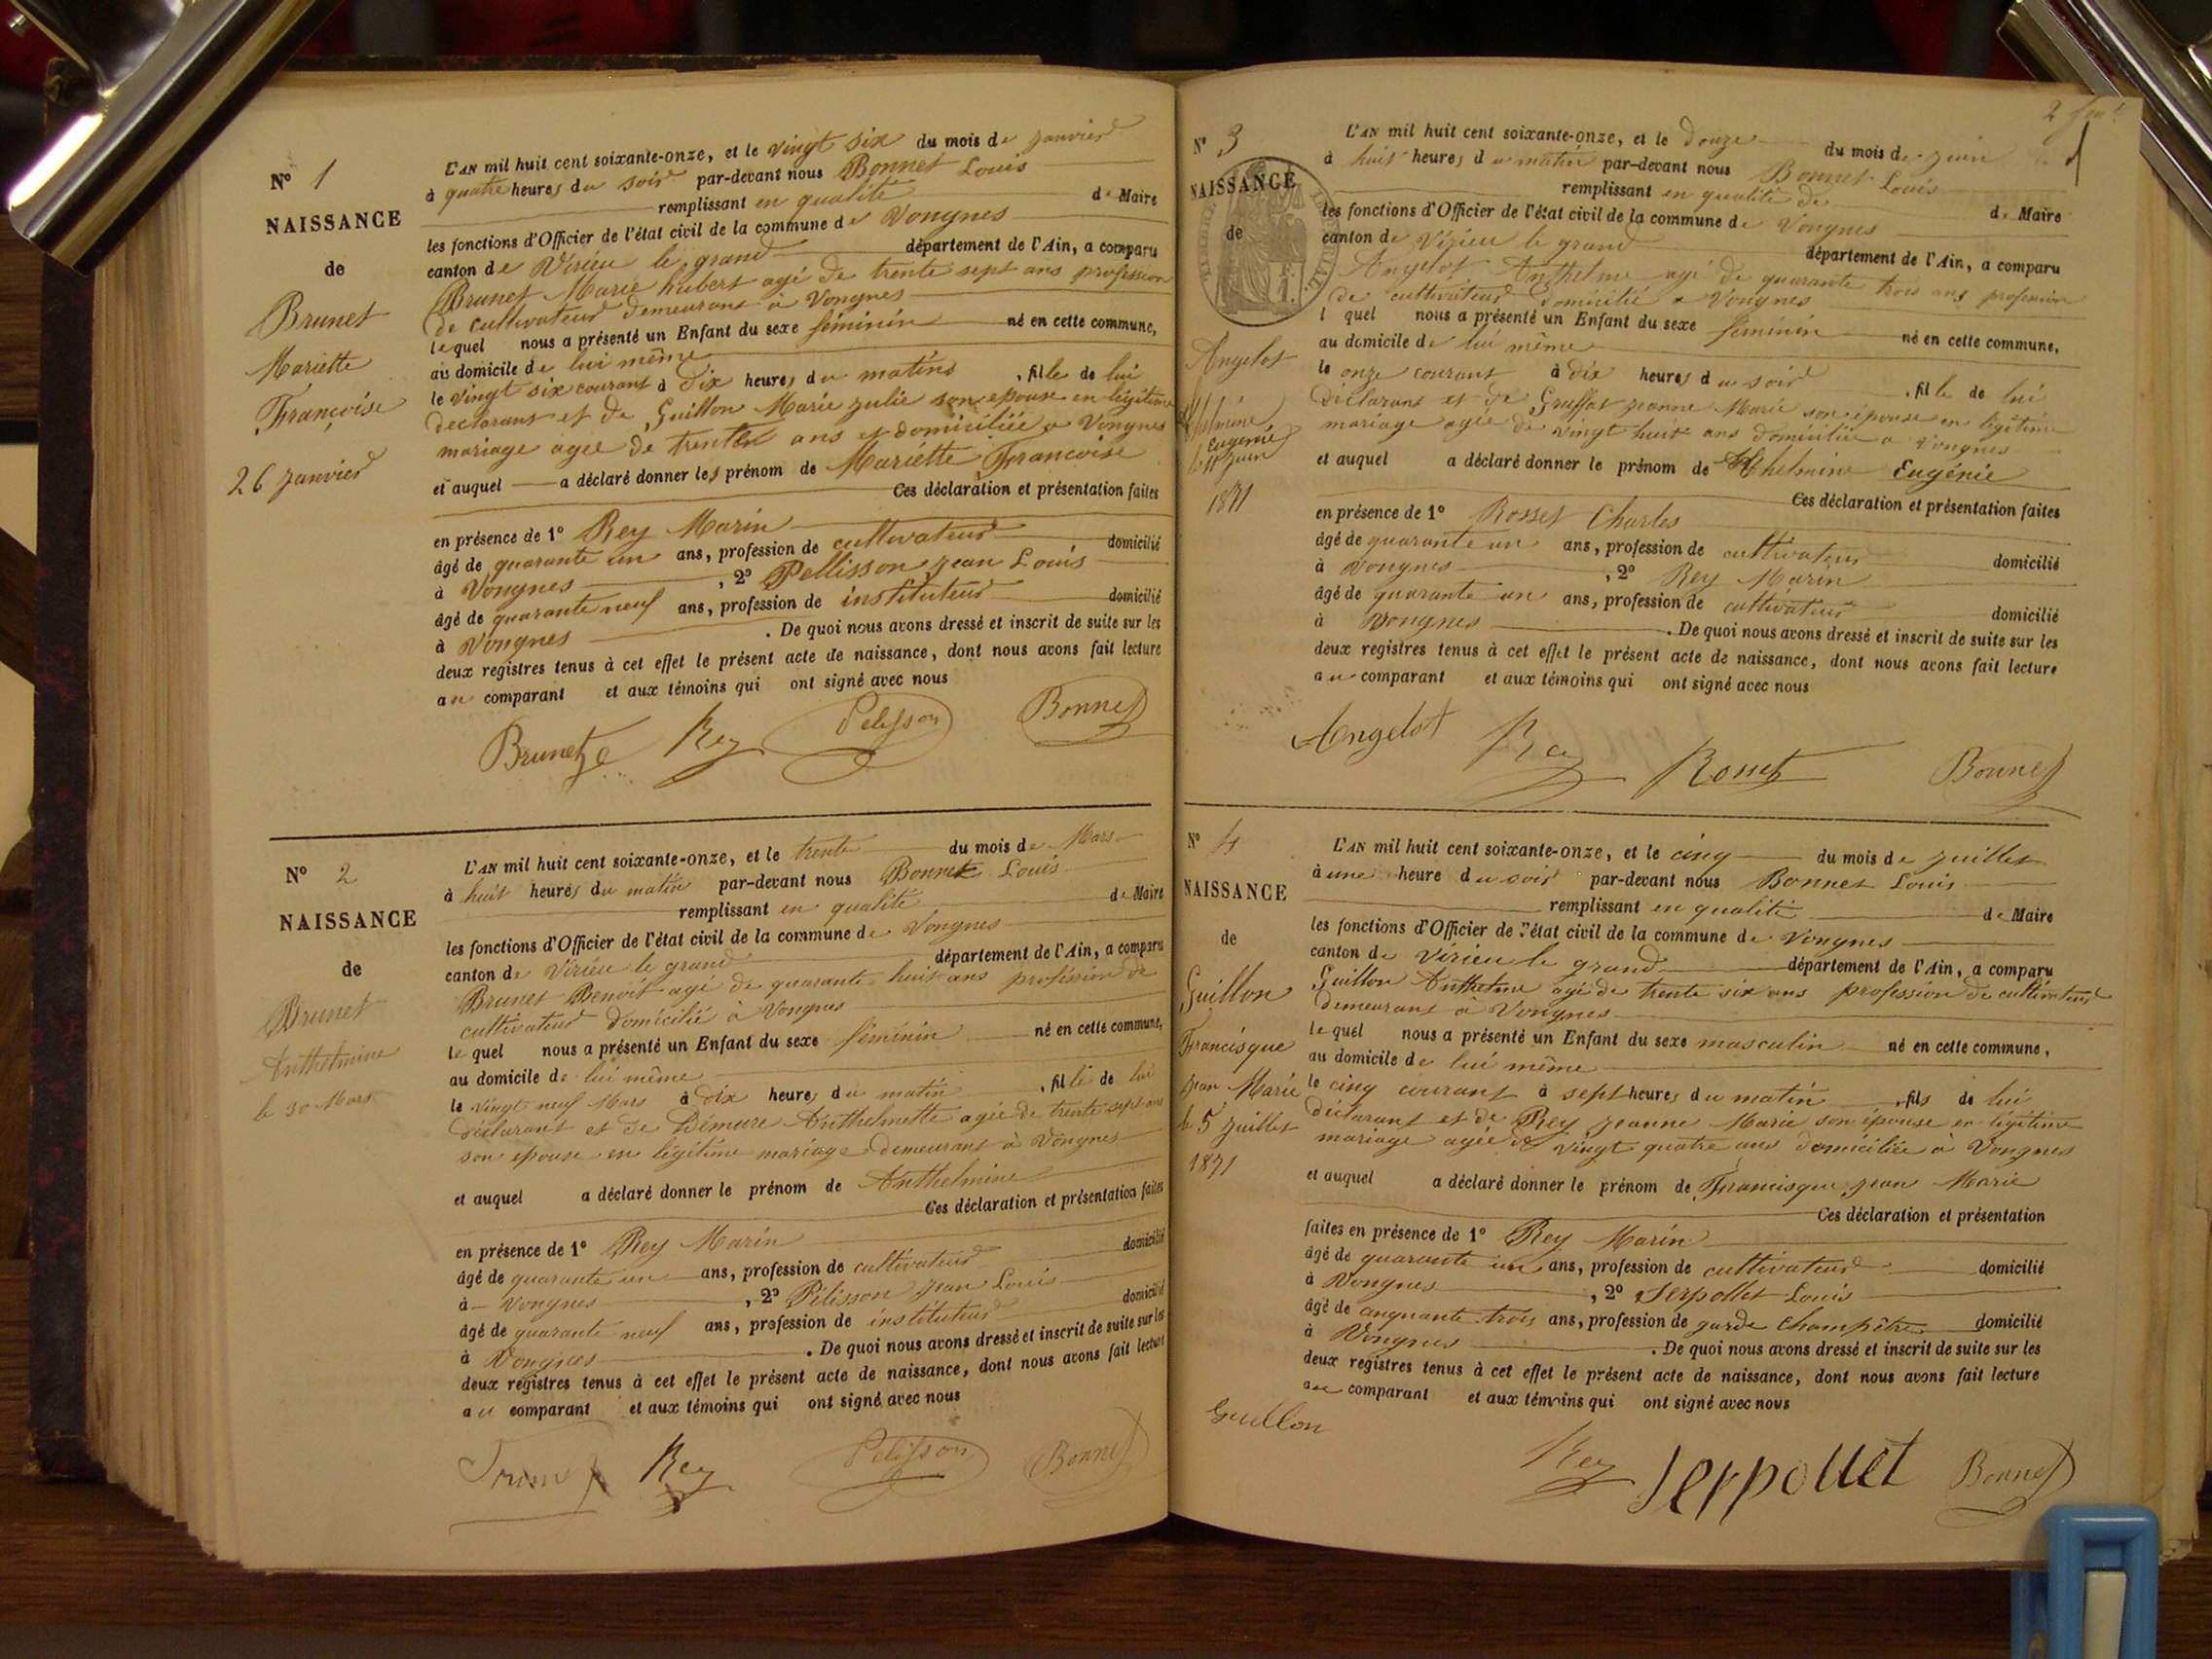 N° 1
NAISSANCE
de
Brunet
Mariette
Françoise
26 janvier
L'AN mil huit cent soixante-onze, et le vingt six du mois de janvier
à quatre heures du soir par-devant nous Bonnet Louis
remplissant en qualité de Maire
les fonctions d'Officier de l'état civil de la commune de Vongnes
canton de Virieu le grand département de l'Ain, a comparu
Brunet Marie hubert agé de trente sept ans profession
de cultivateur demeurant à Vongnes
lequel nous a présenté un Enfant du sexe féminin né en cette commune,
au domicile de lui même
le vingt six courant à dix heures du matins , fille de lui
declarant et de Guillon Marie julie son epouse en légitime
mariage agée de trente ans et domiciliée a Vongnes
et auquel a déclaré donner les prénom de Mariette Françoise
Ces déclaration et présentation faites
en présence de 1° Rey Marin
âgé de quarante un ans, profession de cultivateur domicilié
à Vongnes , 2° Pellisson jean Louis
âgé de quarante neuf ans, profession de instituteur domicilié
à Vongnes . De quoi nous avons dressé et inscrit de suite sur les
deux registres tenus à cet effet le présent acte de naissance, dont nous avons fait lecture
au comparant et aux témoins qui ont signé avec nous
Brunet Rey Pelisson Bonnet
N° 2
NAISSANCE
de
Brunet
Anthelmine
le 30 Mars
L'AN mil huit cent soixante-onze, et le trente du mois de Mars
à huit heures du matin par-devant nous Bonnet Louis
remplissant en qualité de Maire
les fonctions d'Officier de l'état civil de la commune de Vongnes
canton de Virieu le grand département de l'Ain, a comparu
Brunet Benoit agé de quarante huit ans profession de
cultivateur domicilié à Vongnes
lequel nous a présenté un Enfant du sexe féminin né en cette commune,
au domicile de lui même
le vingt neuf Mars à dix heures du matin , fille de lui
déclarant et de Démeure Anthelmette agée de trente sept ans
son epouse en légitime mariage demeurant à Vongnes
et auquel a déclaré donner le prénom de Anthelmine
Ces déclaration et présentation faites
en présence de 1° Rey Marin
âgé de quarante un ans, profession de cultivateur domicilié
à Vongnes , 2° Pélisson jean Louis
âgé de quarante neuf ans, profession de instituteur domicilié
à Vongnes . De quoi nous avons dressé et inscrit de suite sur les
deux registres tenus à cet effet le présent acte de naissance, dont nous avons fait lecture
au comparant et aux témoins qui ont signé avec nous
Rey Pelisson Bonnet
2
N° 3
NAISSANCE
de
Angelot
Eugénie
le 11 juin
1871
L'AN mil huit cent soixante-onze, et le douze du mois de juin
à huit heures du matin par-devant nous Bonnet Louis
remplissant en qualité de de Maire
les fonctions d'Officier de l'état civil de la commune de Vongnes
canton de Virieu le grand département de l'Ain, a comparu
Angelot Anthelme agé de quarante trois ans profession
de cultivateur domicilié a Vongnes
l quel nous a présenté un Enfant du sexe féminin né en cette commune,
au domicile de lui même
le onze courant à dix heures du soir , fille de lui
déclarant et de Gruffat jeanne Marie son épouse en légitime
mariage agée de vingt huit ans domiciliée a Vongnes
et auquel a déclaré donner le prénom de Eugénie
Ces déclaration et présentation faites
en présence de 1° Rosset Charles
âgé de quarante un ans, profession de cultivateur domicilié
à Vongnes , 2° Rey Marin
âgé de quarante un ans, profession de cultivateur domicilié
à Vongnes . De quoi nous avons dressé et inscrit de suite sur les
deux registres tenus à cet effet le présent acte de naissance, dont nous avons fait lecture
au comparant et aux témoins qui ont signé avec nous
Angelot Rey Rosset Bonnet
N° 4
NAISSANCE
de
Guillon
Francisque
jean Marie
le 5 juillet
1871
L'AN mil huit cent soixante-onze, et le cinq du mois de juillet
à une heure du soir par-devant nous Bonnet Louis
remplissant en qualité de Maire
les fonctions d'Officier de l'état civil de la commune de Vongnes
canton de Virieu le grand département de l'Ain, a comparu
Guillon Anthelme agé de trente six ans profession de cultivateur
demeurant à Vongnes
lequel nous a présenté un Enfant du sexe masculin né en cette commune,
au domicile de lui même
le cinq courant à sept heures du matin , fils de lui
déclarant et de Rey jeanne Marie son épouse en légitime
mariage agée de vingt quatre ans domiciliée à Vongnes
et auquel a déclaré donner le prénom de Francisque jean Marie
Ces déclaration et présentation
faites en présence de 1° Rey Marin
âgé de quarante un ans, profession de cultivateur domicilié
à Vongnes , 2° Serpollet Louis
âgé de cinquante trois ans, profession de garde Champêtre domicilié
à Vongnes . De quoi nous avons dressé et inscrit de suite sur les
deux registres tenus à cet effet le présent acte de naissance, dont nous avons fait lecture
au comparant et aux témoins qui ont signé avec nous
Guillon Rey Serpollet Bonnet